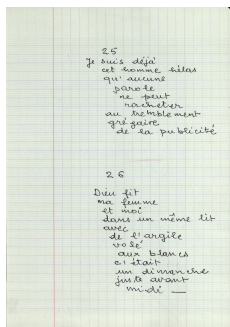 25
Je suis déjà
cet homme hélas
qu'aucune
parole
ne peut
racheter
au tremblement
grégaire
de la publicité
26
Dieu fit
ma femme
et moi
dans un même lit
avec
de l'argile
volé
aux blancs
c'était
un dimanche
juste avant
midi —